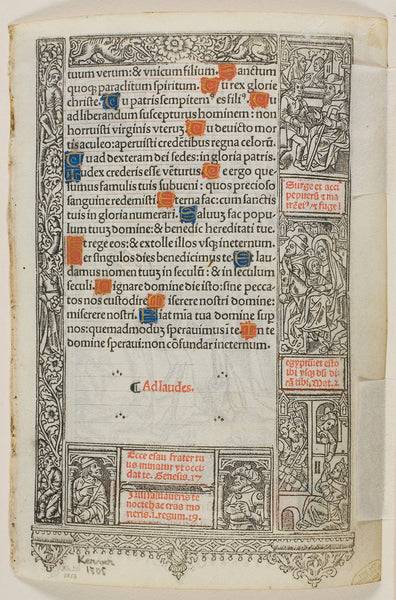 tuum verum: & vnicum filium. Sanctum
quoqꝫ paraclitum spiritum. Tu rex glorie
christe. Tu patris sempitern⁹ es fili⁹. Tu
ad liberandum suscepturus hominem: non
horruisti virginis vterũ. Tu deuicto mor
tis aculeo: aperuisti credẽtibus regna celorũ.
Tu ad dexteram dei sedes: in gloria patris.
Iudex crederis esse vẽturus. Te ergo que
sumus famulis tuis subueni: quos precioso
sanguine redemisti. Eterna fac: cum sanctis
tuis in gloria numerari. Saluũ fac popu
lum tuũ domine: & benedic hereditati tue.
Et rege eos: & extolle illos vsqꝫ ineternum.
Per singulos dies benedicimus te. Et lau
damus nomen tuũ in seculũ: & in seculum
seculi. Dignare domine die isto: sine pecca
to nos custodire. Miserere nostri domine:
miserere nostri. Fiat mĩa tua domine sup
nos: quemadmodũ sperauimus ĩ te. In te
domine speraui: non cõfundar ineternum.
Ad laudes.
Surge et acci
pe puerũ & ma
trẽ ei⁹ & fuge ĩ
egyptũ: et esto
ibi vsqꝫ dũ di
cã tibi. Mat. 2
Ecce esau frater tu
us minatur vt occi
dat te. Genesis. 17
nocte hac cras mo
rieris. 1. regum. 19.
Kerver
1505